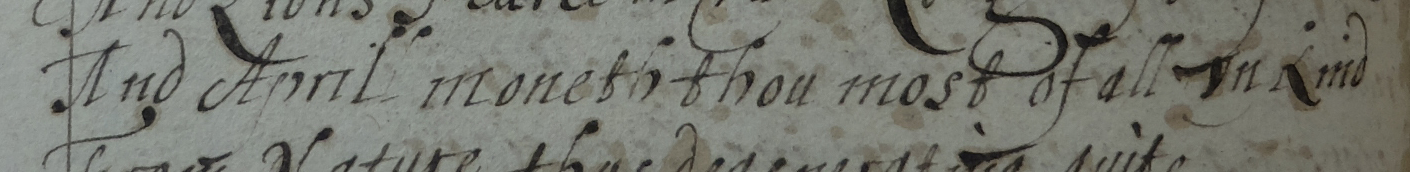 And Lions
And April moneth thou most of all unkind
From Nature thus degenerating quite